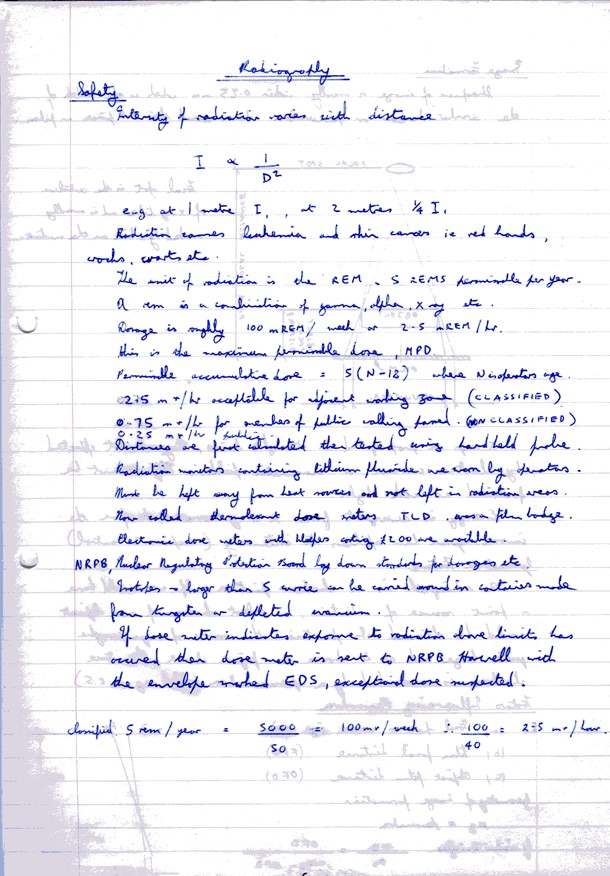 Radiography
Safety
Intensity of radiation varies with distance
I ∝ 1/D²
e.g at 1 metre I, , at 2 metres ¼ I,
Radiation causes leukemia and skin cancer ie red hands,
cracks, warts etc.
The unit of radiation is the REM. 5 REMS permissible per year.
A rem is a combination of gamma, alpha, X ray etc.
Dosage is roughly 100 mREM/week or 2.5 mREM/hr.
this is the maximum permissible dose, MPD
Permissible accumulative dose = 5(N-18) where N is operators age.
2.5 mr/hr acceptable for adjacent working zone (CLASSIFIED)
0.75 mr/hr for members of public walking passed. (NON CLASSIFIED)
0.25 mr/hr public
Distances are first calculated then tested using handheld probe.
Radiation monitors containing lithium fluoride are worn by operators.
Must be kept away from heat sources and not left in radiation areas.
Now called dose meters TLD. was a film badge.
Electronic dose meters with bleepers costing £200 are available.
NRPB, Nuclear Regulatory Protection Board lay down standards for dosages etc.
Isotopes larger than 5 curie can be carried around in containers made
from tungsten or depleted uranium.
If dose meter indicates exposure to radiation above limits has
occured then dose meter is sent to NRPB Harwell with
the envelope marked EDS, exceptional dose suspected.
classified. 5 rem/year = 5000/50 = 100mr/week ∴ 100/40 = 2.5 mr/hour.